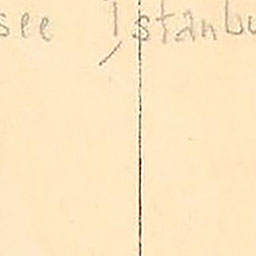 see Istanbu